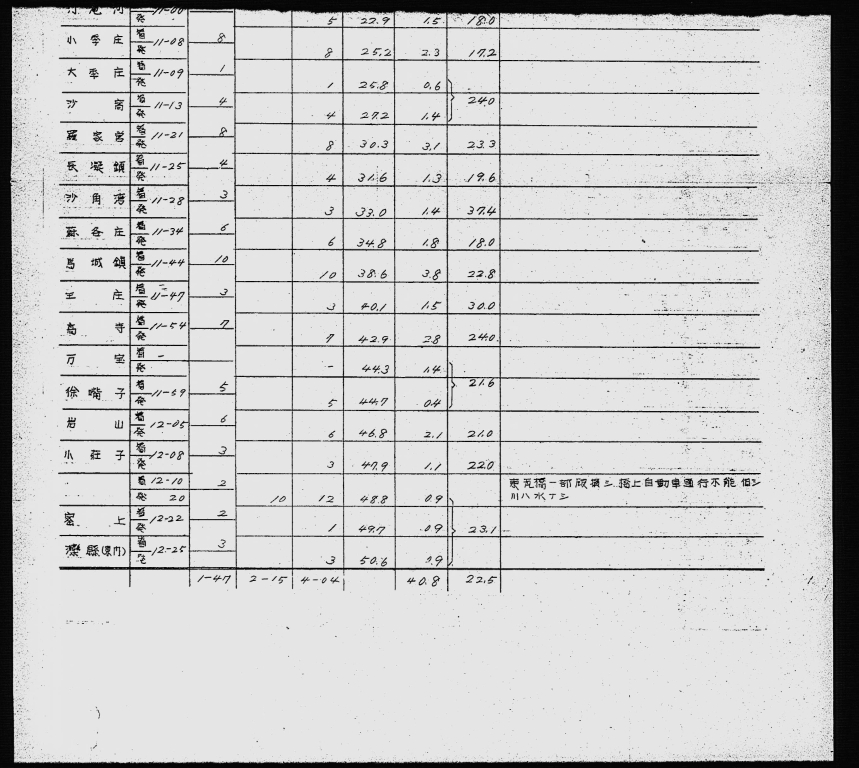 発 5 22.9 1.5 18.0
小李庄 着 11-08 8
発 8 25.2 2.3 17.2
大李庄 着 11-09 1
発 1 25.8 0.6
沙窩 着 11-13 4 24.0
発 4 27.2 1.4
羅家営 着 11-21 8
発 8 30.3 3.1 23.3
長凝鎮 着 11-25 4
発 4 31.6 1.3 19.6
沙角 着 11-28 3
発 3 33.0 1.4 37.4
蘇各庄 着 11-34 6
発 6 34.8 1.8 18.0
馬城鎮 着 11-44 10
発 10 38.6 3.8 22.8
王庄 着 11-47 3
発 3 40.1 1.5 30.0
高寺 着 11-54 7
発 7 42.9 28 24.0
万宝 着 -
発 - 44.3 1.4
徐嘴子 着 11-59 5 21.6
発 5 44.7 0.4
岩山 着 12-05 6
発 6 46.8 2.1 21.0
小荘子 着 12-08 3
発 3 47.9 1.1 220
着 12-10 2
発 20 10 12 48.8 0.9
上 着 12-22 2
発 1 49.7 0.9 23.1
灤縣(東門) 着 12-25 3
発 3 50.6 0.9
1-47 2-15 4-04 40.8 22.5